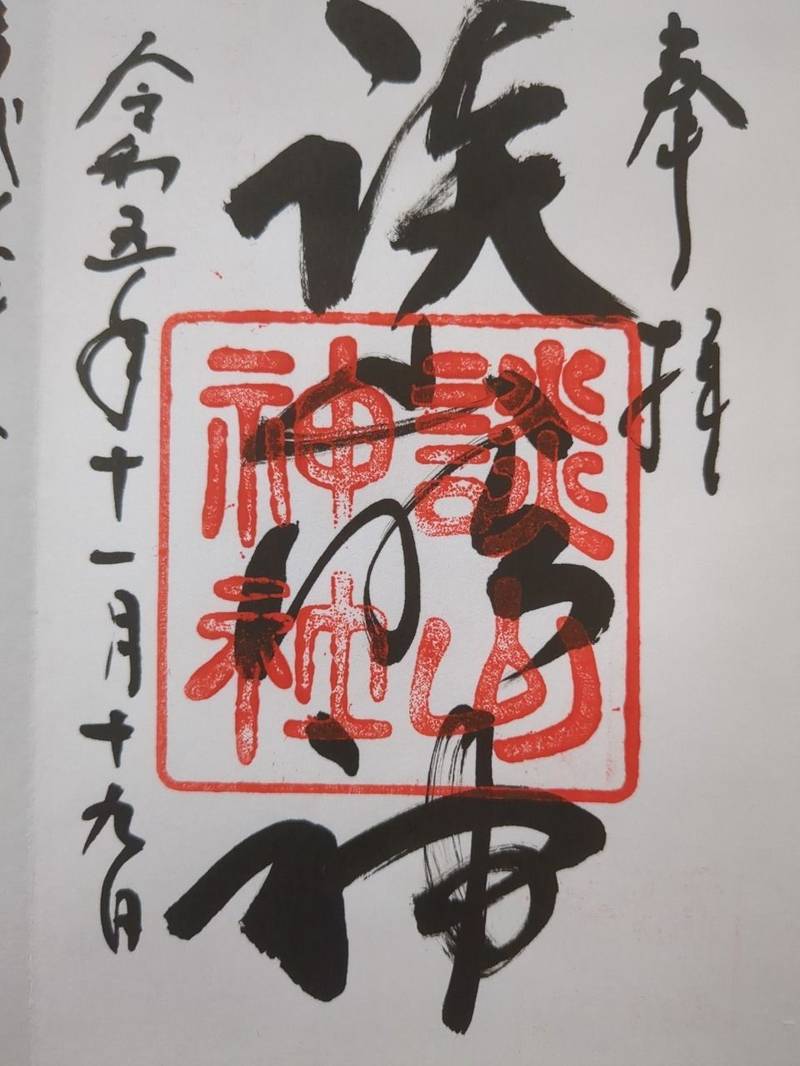 奉拝
談
神
談山
神社
令和五年十一月十九日